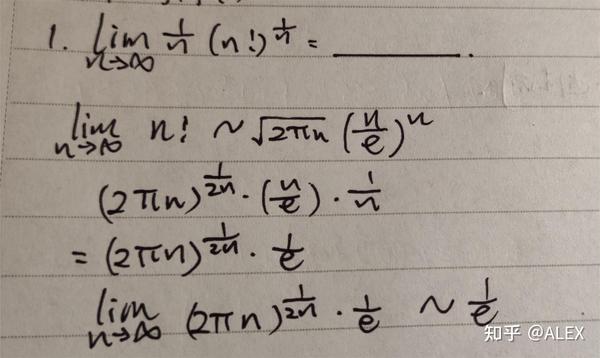 1. lim_{n→∞} 1/n (n!)^{1/n} = ________.
lim_{n→∞} n! ~ √(2πn) (n/e)^n
(2πn)^{1/2n} · (n/e) · 1/n
= (2πn)^{1/2n} · 1/e
lim_{n→∞} (2πn)^{1/2n} · 1/e ~ 1/e
知乎 @ALEX